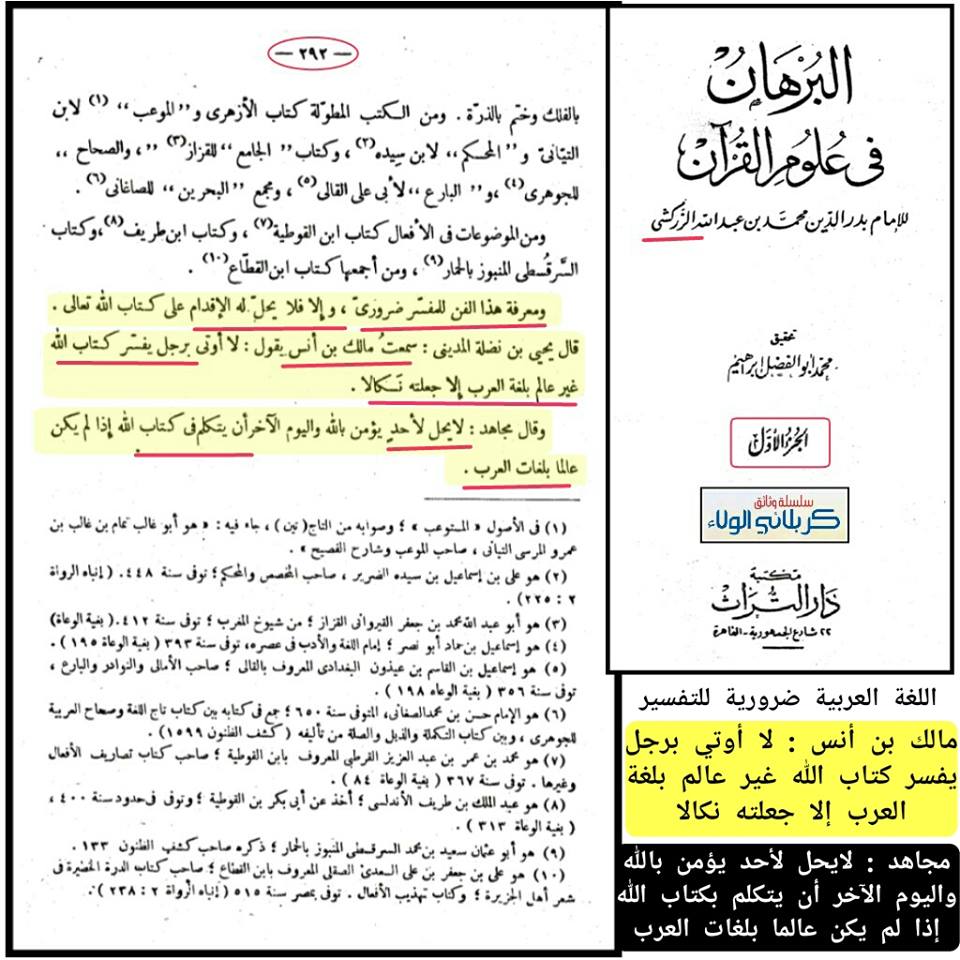 — ٢٩٢ —
بالفلك وختم بالذرة . ومن الكتب المطولة كتاب الأزهرى و”الموعب“ (١) لابن
التيانىّ و”المحكم“ لابن سيده(٢) ، وكتاب ”الجامع“ للقزاز(٣) ”، والصحاح“
للجوهرى(٤) ،و” البارع“ لأبى على القالى(٥) ، ومجمع ”البحرين“ للصاغانى(٦) .
ومن الموضوعات فى الأفعال كتاب ابن القوطية(٧) ، وكتاب ابن طريف(٨)،وكتاب
السَّرقسطى المنبوز بالحمار(٩) ، ومن أجمعها كتاب ابن القطّاع(١٠) .
ومعرفة هذا الفن للمفسّر ضرورىّ ، و إلا فلا يحلّ له الإقدام على كتاب الله تعالى .
قال يحيى بن نضلة المدينى : سمعتُ مالك بن أنس يقول : لا أوتى برجل يفسّر كتاب الله
غير عالم بلغة العرب إلا جعلته نَكالا .
وقال مجاهد : لايحل لأحدٍ يؤمن بالله واليوم الآخر أن يتكلم فى كتاب الله إذا لم يكن
عالما بلغات العرب .
(١) فى الأصول « المستوعب » ؛ وصوابه من التاج( تين ) ، جاء فيه : « هو أبو غالب تمام بن غالب بن
عمرو المرسى التيانى ، صاحب الموعب وشارح الفصيح » .
(٢) هو على بن إسماعيل بن سيده الضرير ، صاحب المخصص والمحكم؛ توفى سنة ٤٤٨ . ( إنباه الرواة
٢ : ٢٢٥) .
(٣) هو أبو عبد الله محمد بن جعفر القيروانى القزاز ؛ من شيوخ المغرب ؛ توفى سنة ٤١٢ .( بغية الوعاة)
(٤) هو إسماعيل بن حماد أبو نصر ؛ إمام اللغة والأدب فى عصره، توفى سنة ٣٩٣ ( بغية الوعاة ١٩٥ ) .
(٥) هو إسماعيل بن القاسم بن عيذون البغدادى المعروف بالقالى ؛ صاحب الأمالى والنوادر والبارع ،
توفى سنة ٣٥٦ ( بغية الوعاه ١٩٨ ) .
(٦) هو الإمام حسن بن محمد الصغانى، المتوفى سنة ٦٥٠ ؛ جمع فى كتابه بين كتاب تاج اللغة وصحاح العربية
للجوهرى ، وبين كتاب التكملة والذيل والصلة من تأليفه ( كشف الظنون ١٥٩٩ ) .
(٧) هو محمد بن عمر بن عبد العزيز القرطبى المعروف بابن القوطية ؛ صاحب كتاب تصاريف الأفعال
وغيرها . توفى سنة ٣٦٧ ( بغية الوعاة ٨٤ ) .
(٨) هو عبد الملك بن طريف الأندلسى ؛ أخذ عن أبى بكر بن القوطية ؛ وتوفى فى حدود سنة ٤٠٠ ،
( بغية الوعاة ٣١٣ ) .
(٩) هو أبو عثمان سعيد بن محمد السرقسطى المنبوز بالحمار ؛ ذكره صاحب كشف الظنون ١٣٣ .
(١٠) هو على بن جعفر بن على السعدى الصقلى المعروف بابن القطاع ؛ صاحب كتاب الدرة الخطيرة فى
شعر أهل الجزيرة ؛ وكتاب تهذيب الأفعال . توفى بمصر سنة ٥١٥ ( إنباه الرواة ٢ : ٢٣٨ ) .
البُرْهَانُ
فى عُلُومِ القُرْآنِ
للإمام بدر الدين محمد بن عبد الله الزركشى
تحقيق
محمد أبو الفضل إبراهيم
الجزء الأول
سلسلة وثائق
كربلائي الولاء
مكتبة
دار التراث
٢٢ شارع الجمهورية - القاهرة
اللغة العربية ضرورية للتفسير
مالك بن أنس : لا أوتي برجل
يفسر كتاب الله غير عالم بلغة
العرب إلا جعلته نكالا
مجاهد : لايحل لأحد يؤمن بالله
واليوم الآخر أن يتكلم بكتاب الله
إذا لم يكن عالما بلغات العرب